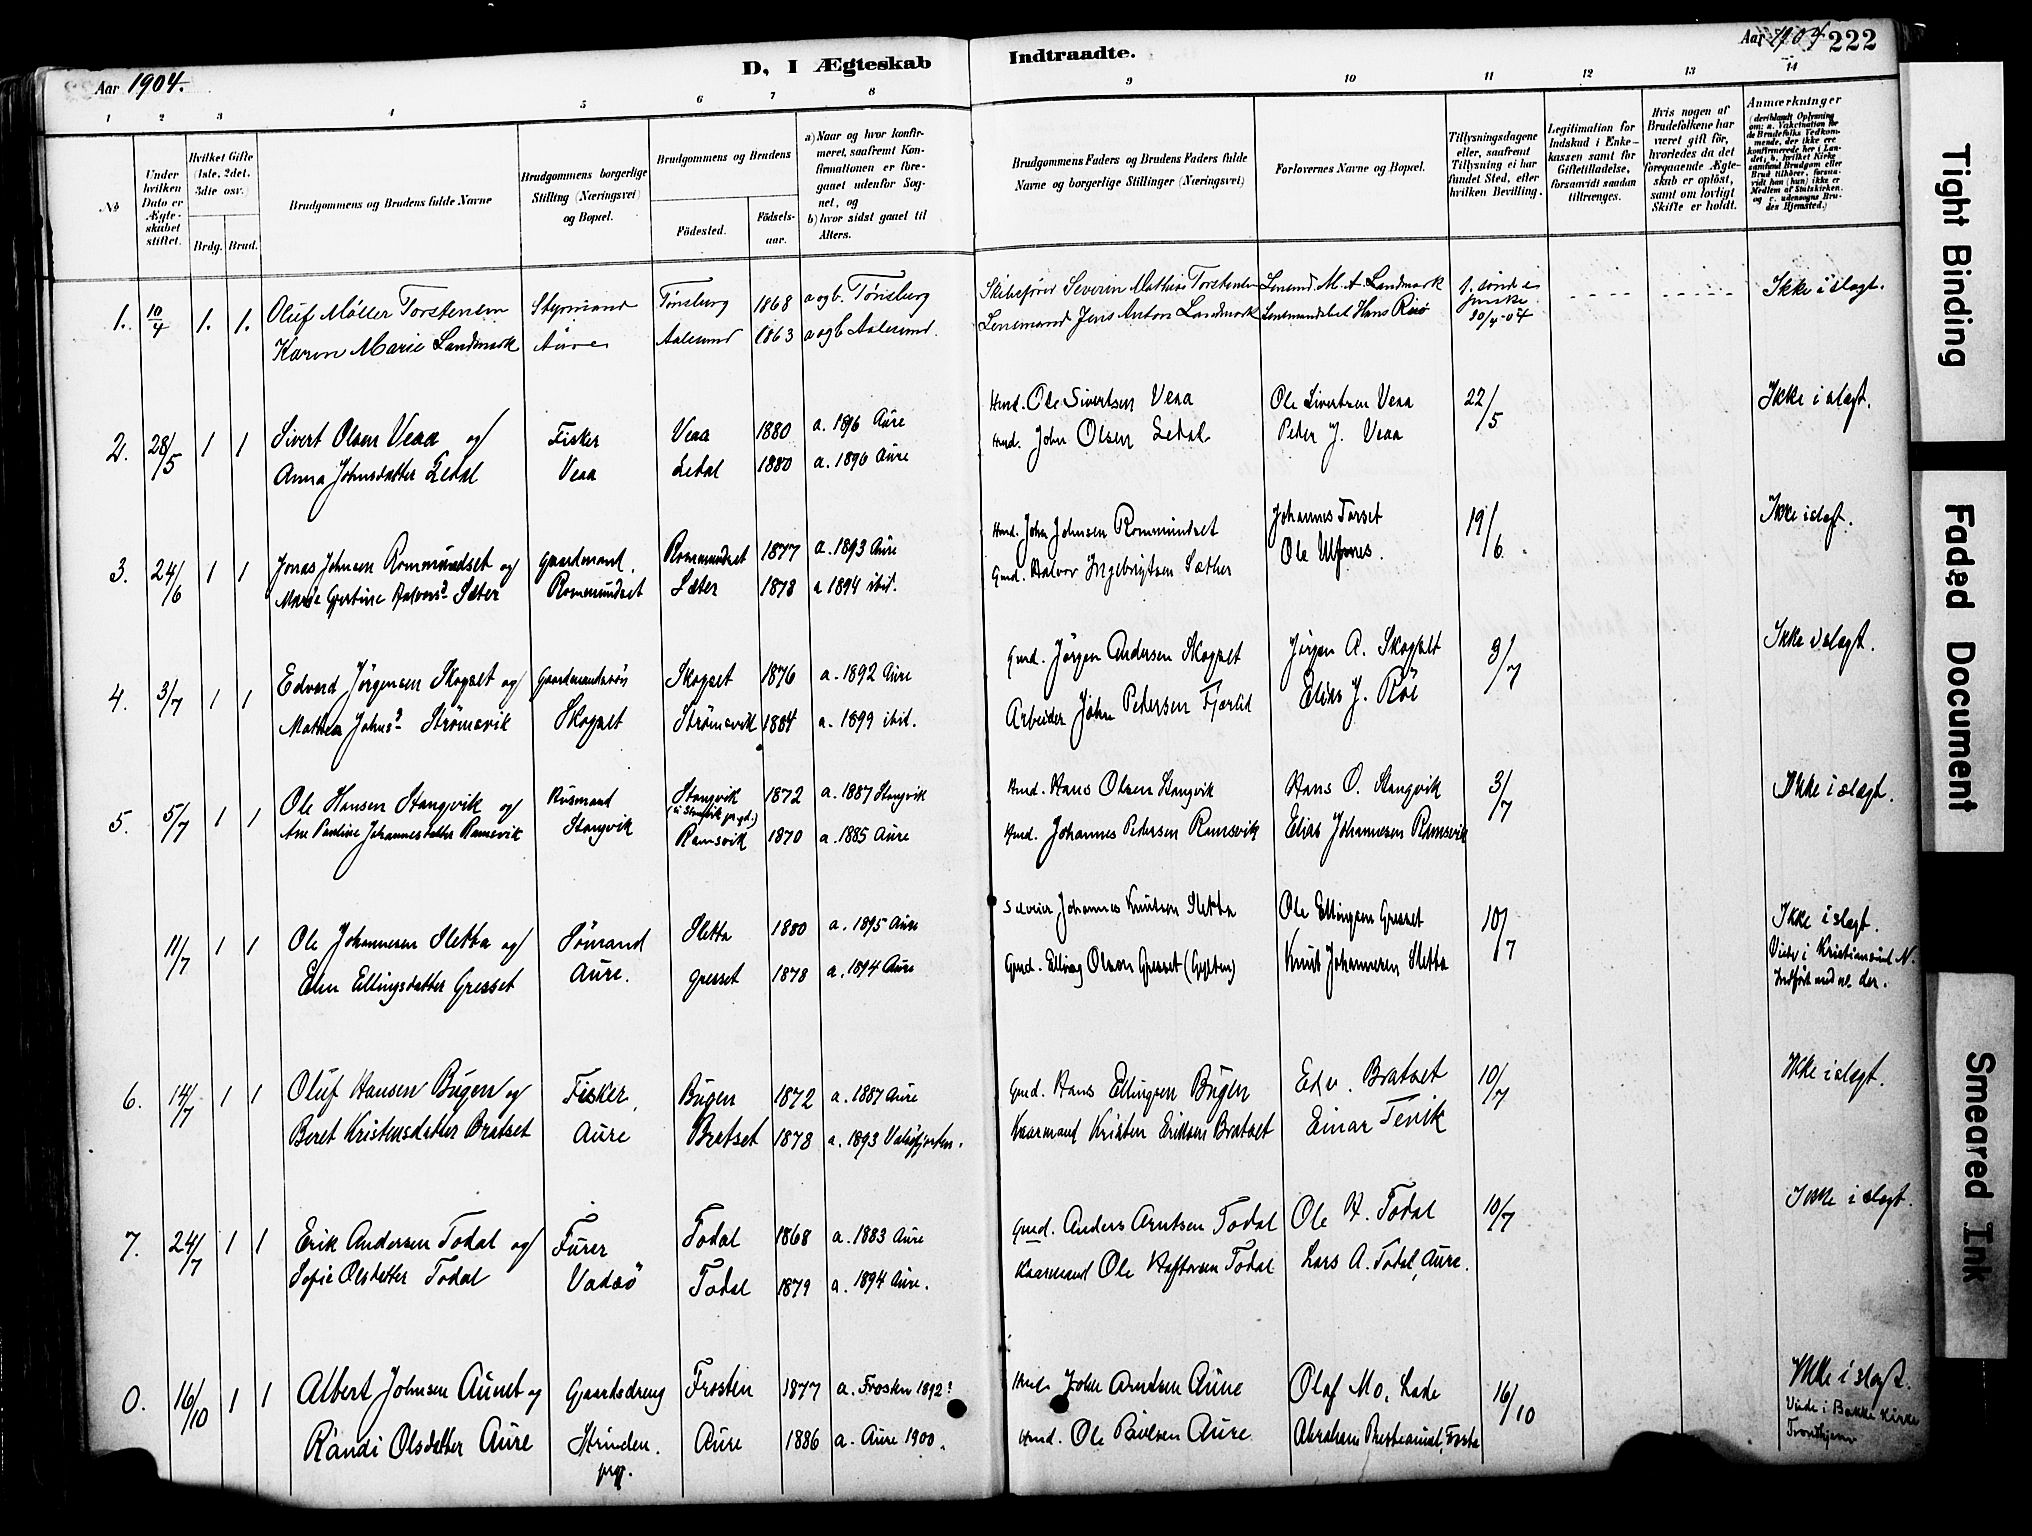 Aar 1904.
D, I Ægteskab Indtraadte.
Aar 1904 222
1 2 3 4 5 6 7 8 9 10 11 12 13 14
No
Under hvilken Dato er Ægteskabet stiftet.
Hvilket Gifte (1ste, 2det, 3die osv.)
Brdg. Brud.
Brudgommens og Brudens fulde Navne
Brudgommens borgerlige Stilling (Næringsvei) og Bopæl.
Brudgommens og Brudens
Födested. Födselsaar.
a) Naar og hvor konfirmeret, saafremt Konfirmationen er foregaaet udenfor Sognet, og
b) hvor sidst gaaet til Alters.
Brudgommens Faders og Brudens Faders fulde Navne og borgerlige Stillinger (Næringsvei)
Forlovernes Navne og Bopæl.
Tillysningsdagene eller, saafremt Tillysning ei har fundet Sted, efter hvilken Bevilling.
Legitimation for Indskud i Enkekassen samt for Giftetilladelse, forsaavidt saadan tiltrænges.
Hvis nogen af Brudefolkene har været gift för, hvorledes da det foregaaende Ægteskab er oplöst, samt om lovligt Skifte er holdt.
Anmærkninger
(deriblandt Oplysning om: a. Vakcination for de Brudefolks Vedkommende, der ikke ere konfirmerede her i Landet; b. hvilket Kirkesamfund Brudgom eller Brud tilhörer, forsaavidt han (hun) ikke er Medlem af Statskirken. og c. udensogns Brudes Hjemsted.)
1. 10/4 1. 1. Oluf Möller Torstensen Styrmand Tönsberg 1868 a og b. Tönsberg Skibsförer Severin Mathias Torstensen Lensmd. M. A. Landmark Ikke i slægt.
Karen Marie Landmark Aure Aalesund 1863 a og b Aalesund. Lensmand Jens Anton Landmark Hans Risö 20/4-04
2. 28/5 1 1 Sivert Olsen Veaa og Fisker Veaa 1880 a. 1896 Aure Hmd. Ole Sivertsen Veaa Ole Sivertsen Veaa 22/5 Ikke i slægt.
Anna Johnsdatter Ledal Veaa Ledal 1880 a. 1890 Aure Hmd. John Olsen Ledal Peder J. Veaa
3. 24/6 1 1 Jonas Johnsen Rommundset og Gaardmand. Rommundset 1877 a. 1893 Aure Hmd. John Johnsen Rommundset Johannes Torset 19/6. Ikke i slægt.
Marie Gjertine Halvors? Sæter Rommundset Sæter 1878 a 1894 ibid. Gmd. Halvor Ingebrigtsen Sæther Ole Ulfsnes.
4. 3/7 1 1 Edvard Jörgensen Skogset og Gaardmandssön Skogset 1876 a. 1892 Aure Gmd. Jörgen Andersen Skogset Jörgen A. Skogset 3/7 Ikke i slægt.
Mathea Johns? Strömsvik Skogset Strömsvik 1884 a. 1899 ibid. Arbeider John Pedersen Fjærlid Elias J. Röe
5. 5/7 1 1 Ole Hansen Stangvik og Husmand Stangvik 1872 a. 1887 Stangvik Hmd. Hans Olsen Stangvik Hans O. Stangvik 3/7 Ikke i slægt.
(i Stangvik pr.gd.)
Ane Pauline Johannesdatter Ramsvik Stangvik Ramsvik 1870 a. 1885 Aure Hmd. Johannes Pedersen Ramsvik Elias Johannesen Ramsvik
11/7 1 1 Ole Johannesen Sletta og Sömand Sletta 1880 a. 1895 Aure Selveier Johannes Knutsen Sletta Ole Ellingsen Gresset 10/7 Ikke i slægt.
Elen Ellingsdatter Gresset Aure. Gresset 1878 a. 1894 Aure Gmd. Elling Olsen Gresset Knut Johannesen Sletta Viede i Kristiansund N.
6. 14/7 1 1 Oluf Hansen Bugen og Fisker, Bugen 1872 a. 1887 Aure Gmd. Hans Ellingsen Bugen Edv. Bratset 10/7 Ikke i slægt.
Beret Kristensdatter Bratset Aure Bratset 1878 a. 1893 Valsöfjorden. Kaarmand Kristen Eriksen Bratset Einar Tevik
7. 24/7 1 1 Erik Andersen Todal og Furer Todal 1868 a. 1883 Aure Gmd. Anders Arntsen Todal Ole H. Todal 10/7 Ikke i slægt.
Sofie Olsdatter Todal Vadsö Todal 1879 a. 1894 Aure. Kaarmand Ole Haftorsen Todal Lars A. Todal, Aure.
0. 16/10 1 1 Albert Johnsen Aunet og Gaardsdreng Frosten 1877 a. Frosten 1892? John Arntsen Aune Olaf Mo, Lade 16/10 Ikke i slægt.
Randi Olsdatter Aure Strinden. prgj. Aure 1886 a. Aure 1900. Hmd. Ole Paulsen Aure Abraham Viede i Bakke Kirke Trondhjem
Tight Binding
Faded Document
Smeared Ink